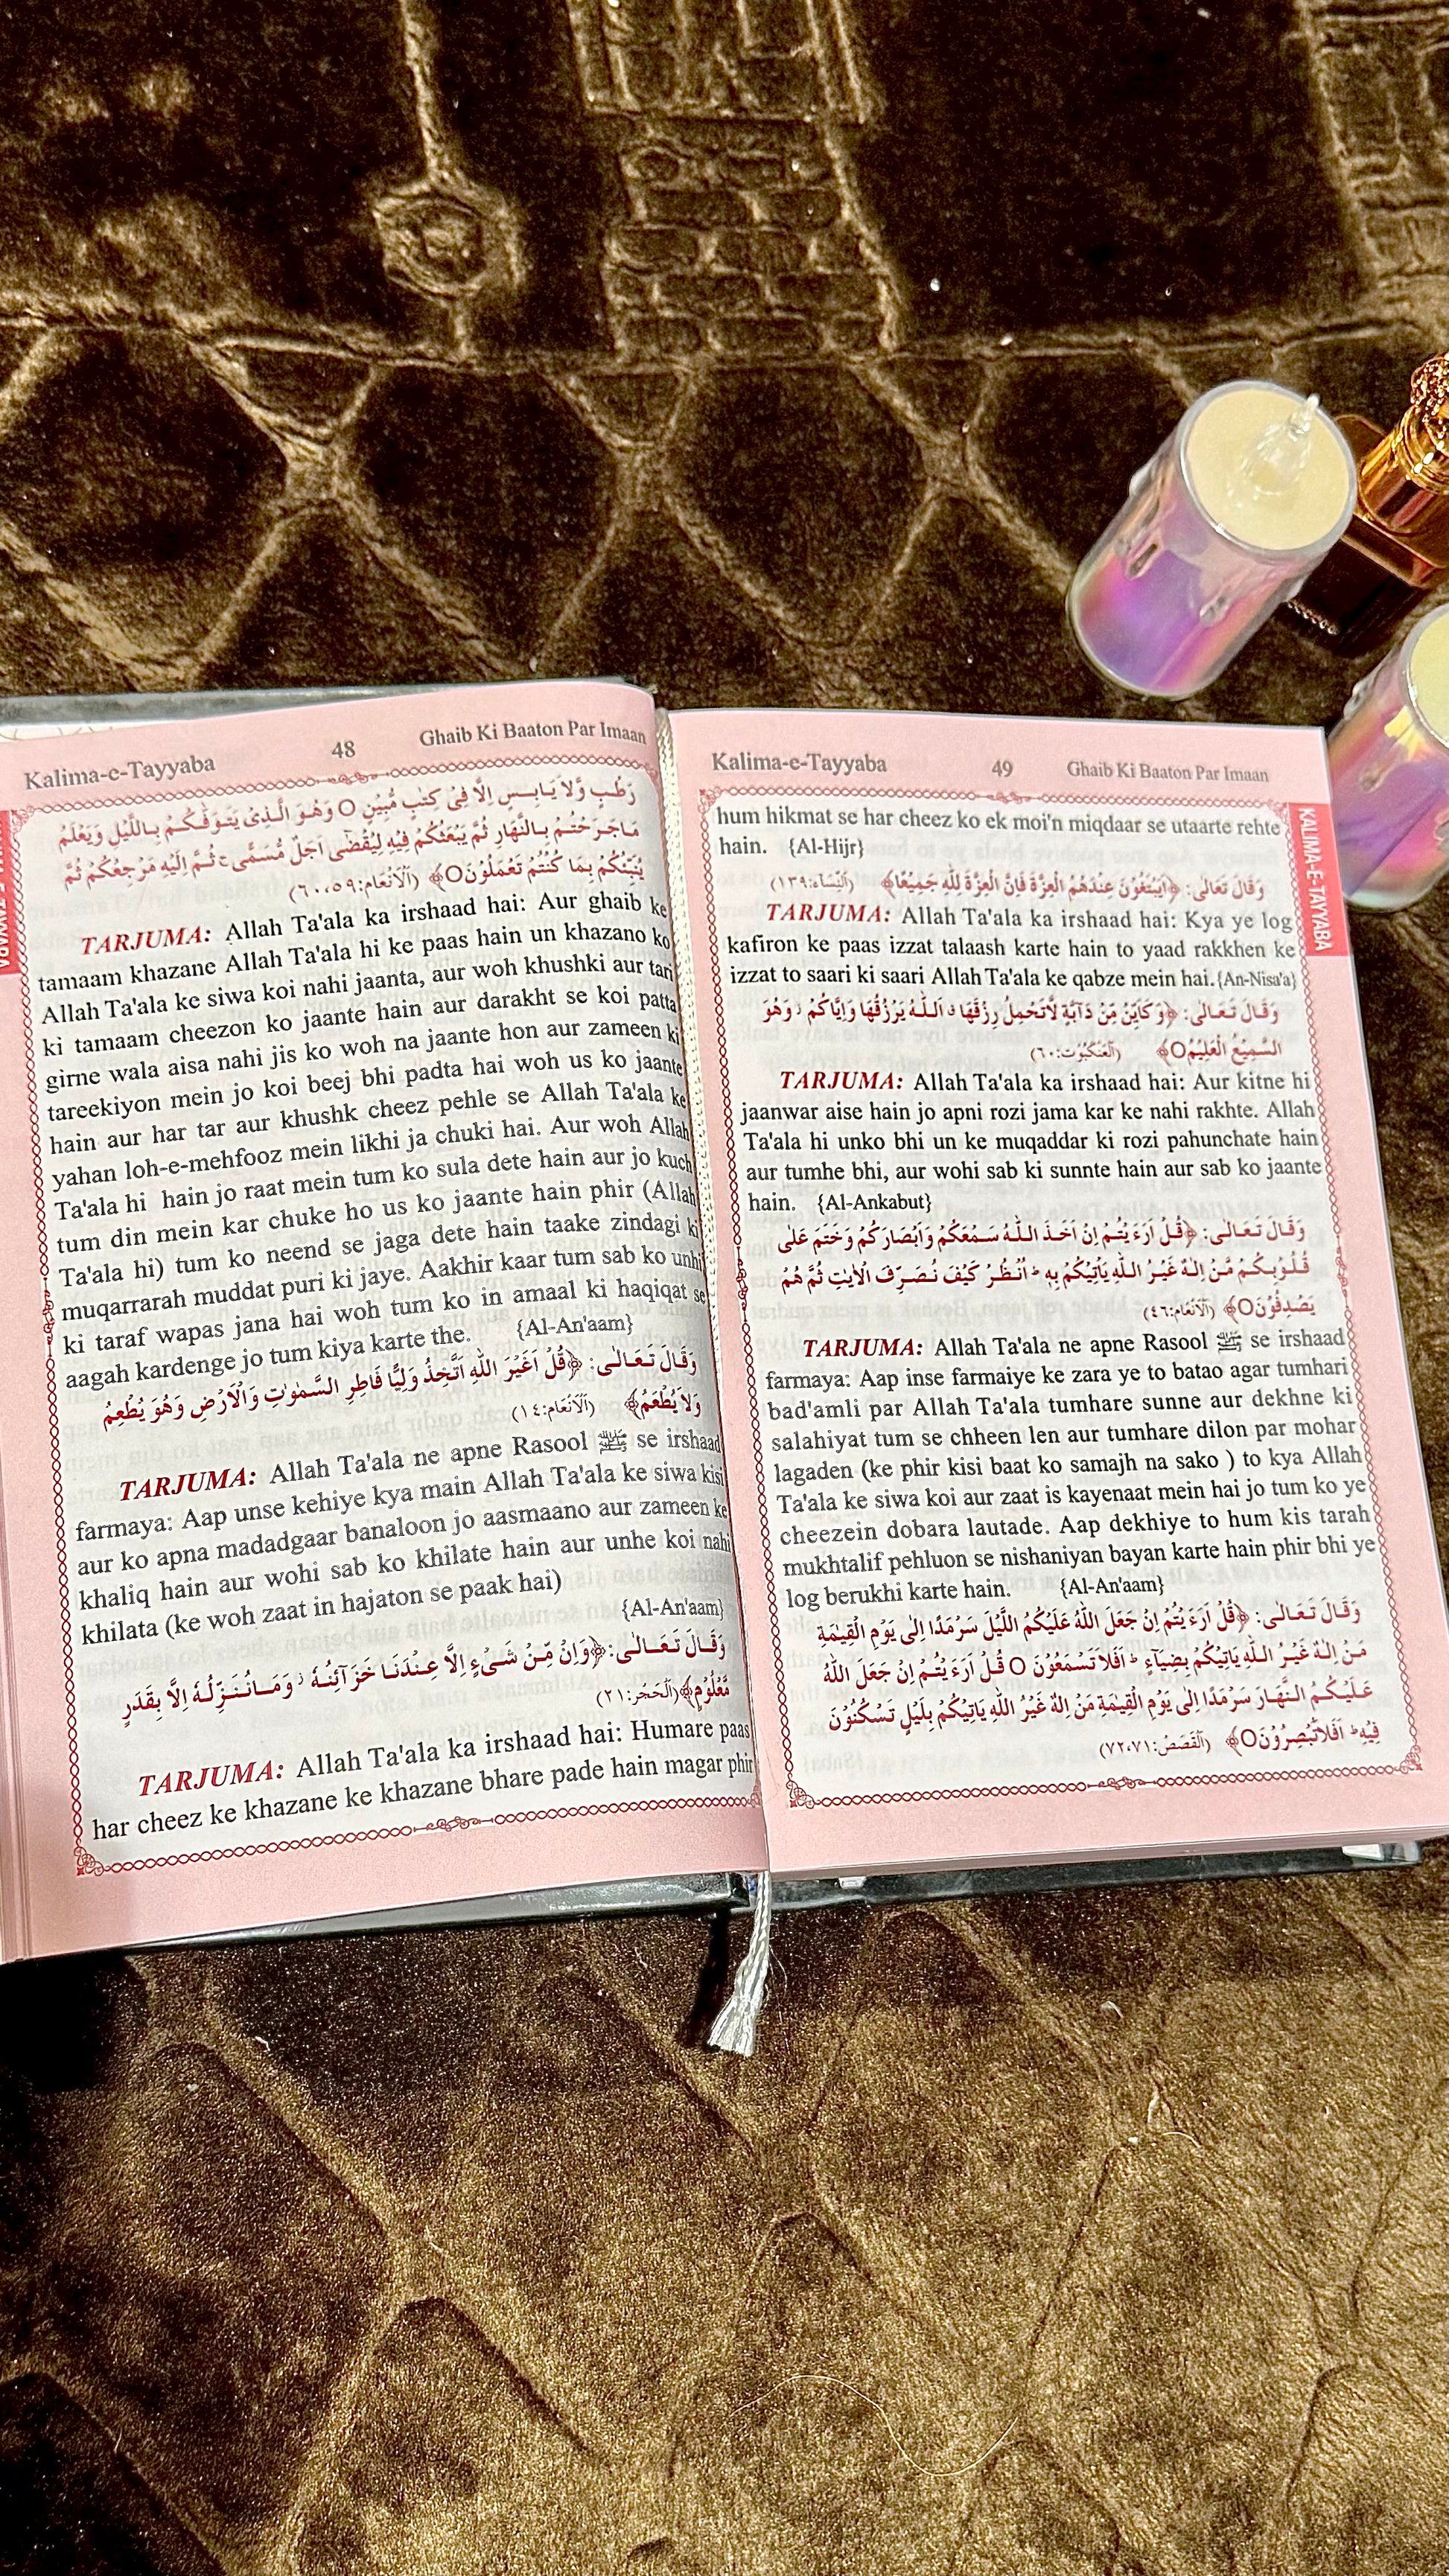 Kalima-e-Tayyaba 48 Ghaib Ki Baaton Par Imaan
رَطْبٍ وَّلَا يَابِسٍ اِلَّا فِيْ كِتٰبٍ مُّبِيْنٍ O وَهُوَ الَّذِيْ يَتَوَفّٰكُمْ بِاللَّيْلِ وَيَعْلَمُ
مَاجَرَحْتُمْ بِالنَّهَارِ ثُمَّ يَبْعَثُكُمْ فِيْهِ لِيُقْضٰٓى اَجَلٌ مُّسَمًّى ۚ ثُمَّ اِلَيْهِ مَرْجِعُكُمْ ثُمَّ
يُنَبِّئُكُمْ بِمَا كُنْتُمْ تَعْمَلُوْنَO﴾ (اَلْاَنْعَام:٥٩،٦٠)
TARJUMA: Allah Ta'ala ka irshaad hai: Aur ghaib ke
tamaam khazane Allah Ta'ala hi ke paas hain un khazano ko
Allah Ta'ala ke siwa koi nahi jaanta, aur woh khushki aur tari
ki tamaam cheezon ko jaante hain aur darakht se koi patta
girne wala aisa nahi jis ko woh na jaante hon aur zameen ki
tareekiyon mein jo koi beej bhi padta hai woh us ko jaante
hain aur har tar aur khushk cheez pehle se Allah Ta'ala ke
yahan loh-e-mehfooz mein likhi ja chuki hai. Aur woh Allah
Ta'ala hi hain jo raat mein tum ko sula dete hain aur jo kuch
tum din mein kar chuke ho us ko jaante hain phir (Allah
Ta'ala hi) tum ko neend se jaga dete hain taake zindagi ki
muqarrarah muddat puri ki jaye. Aakhir kaar tum sab ko unhi
ki taraf wapas jana hai woh tum ko in amaal ki haqiqat se
aagah kardenge jo tum kiya karte the. {Al-An'aam}
وَقَالَ تَعَالٰى: ﴿قُلْ اَغَيْرَ اللّٰهِ اَتَّخِذُ وَلِيًّا فَاطِرِ السَّمٰوٰتِ وَالْاَرْضِ وَهُوَ يُطْعِمُ
وَلَايُطْعَمُ﴾ (اَلْاَنْعَام:١٤)
TARJUMA: Allah Ta'ala ne apne Rasool ﷺ se irshaad
farmaya: Aap unse kehiye kya main Allah Ta'ala ke siwa kisi
aur ko apna madadgaar banaloon jo aasmaano aur zameen ke
khaliq hain aur wohi sab ko khilate hain aur unhe koi nahi
khilata (ke woh zaat in hajaton se paak hai)
{Al-An'aam}
وَقَالَ تَعَالٰى: ﴿وَاِنْ مِّنْ شَىْءٍ اِلَّا عِنْدَنَا خَزَآئِنُهٗ ز وَمَانُنَزِّلُهٗ اِلَّا بِقَدَرٍ
مَّعْلُوْمٍ﴾ (اَلْحَجَر:٢١)
TARJUMA: Allah Ta'ala ka irshaad hai: Humare paas
har cheez ke khazane ke khazane bhare pade hain magar phir
Kalima-e-Tayyaba 49 Ghaib Ki Baaton Par Imaan
KALIMA-E-TAYYABA
hum hikmat se har cheez ko ek moi'n miqdaar se utaarte rehte
hain. {Al-Hijr}
وَقَالَ تَعَالٰى: ﴿اَيَبْتَغُوْنَ عِنْدَهُمُ الْعِزَّةَ فَاِنَّ الْعِزَّةَ لِلّٰهِ جَمِيْعًا﴾ (اَلنِّسَاء:١٣٩)
TARJUMA: Allah Ta'ala ka irshaad hai: Kya ye log
kafiron ke paas izzat talaash karte hain to yaad rakkhen ke
izzat to saari ki saari Allah Ta'ala ke qabze mein hai.{An-Nisa'a}
وَقَالَ تَعَالٰى: ﴿وَكَاَيِّنْ مِّنْ دَآبَّةٍ لَّاتَحْمِلُ رِزْقَهَا ق اَللّٰهُ يَرْزُقُهَا وَاِيَّاكُمْ ز وَهُوَ
السَّمِيْعُ الْعَلِيْمُO﴾ (اَلْعَنْكَبُوْت:٦٠)
TARJUMA: Allah Ta'ala ka irshaad hai: Aur kitne hi
jaanwar aise hain jo apni rozi jama kar ke nahi rakhte. Allah
Ta'ala hi unko bhi un ke muqaddar ki rozi pahunchate hain
aur tumhe bhi, aur wohi sab ki sunnte hain aur sab ko jaante
hain. {Al-Ankabut}
وَقَالَ تَعَالٰى: ﴿قُلْ اَرَءَيْتُمْ اِنْ اَخَذَ اللّٰهُ سَمْعَكُمْ وَاَبْصَارَكُمْ وَخَتَمَ عَلٰى
قُلُوْبِكُمْ مَّنْ اِلٰهٌ غَيْرُ اللّٰهِ يَاْتِيْكُمْ بِهٖ ط اُنْظُرْ كَيْفَ نُصَرِّفُ الْاٰيٰتِ ثُمَّ هُمْ
يَصْدِفُوْنَO﴾ (اَلْاَنْعَام:٤٦)
TARJUMA: Allah Ta'ala ne apne Rasool ﷺ se irshaad
farmaya: Aap inse farmaiye ke zara ye to batao agar tumhari
bad'amli par Allah Ta'ala tumhare sunne aur dekhne ki
salahiyat tum se chheen len aur tumhare dilon par mohar
lagaden (ke phir kisi baat ko samajh na sako ) to kya Allah
Ta'ala ke siwa koi aur zaat is kayenaat mein hai jo tum ko ye
cheezein dobara lautade. Aap dekhiye to hum kis tarah
mukhtalif pehluon se nishaniyan bayan karte hain phir bhi ye
log berukhi karte hain. {Al-An'aam}
وَقَالَ تَعَالٰى: ﴿قُلْ اَرَءَيْتُمْ اِنْ جَعَلَ اللّٰهُ عَلَيْكُمُ اللَّيْلَ سَرْمَدًا اِلٰى يَوْمِ الْقِيٰمَةِ
مَنْ اِلٰهٌ غَيْرُ اللّٰهِ يَاْتِيْكُمْ بِضِيَآءٍ ط اَفَلَاتَسْمَعُوْنَ O قُلْ اَرَءَيْتُمْ اِنْ جَعَلَ اللّٰهُ
عَلَيْكُمُ النَّهَارَ سَرْمَدًا اِلٰى يَوْمِ الْقِيٰمَةِ مَنْ اِلٰهٌ غَيْرُ اللّٰهِ يَاْتِيْكُمْ بِلَيْلٍ تَسْكُنُوْنَ
فِيْهِ ط اَفَلَاتُبْصِرُوْنَO﴾ (اَلْقَصَص:٧١،٧٢)